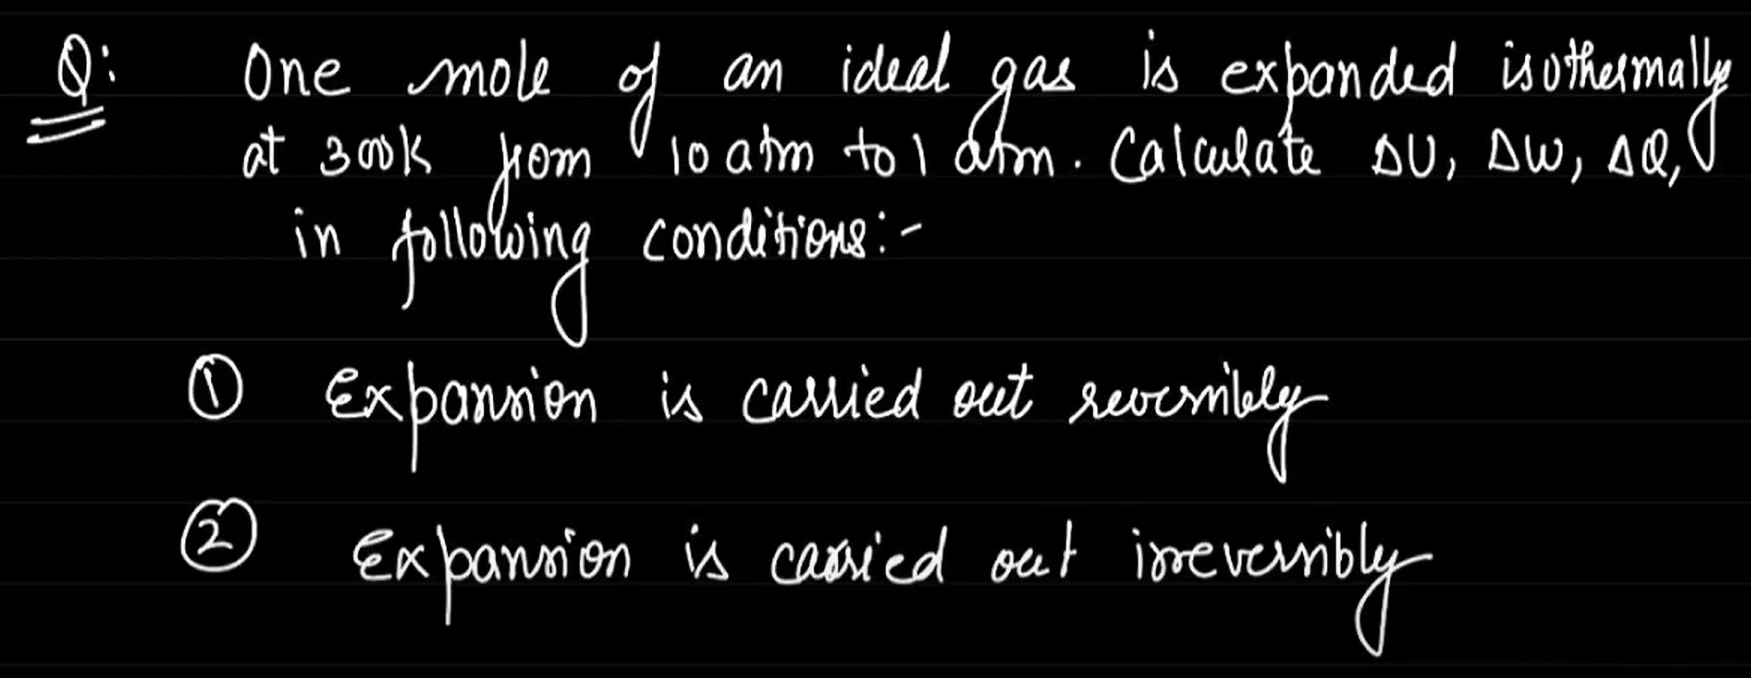 Q: One mole of an ideal gas is expanded isothermally
at 300K from 10 atm to 1 atm. Calculate ΔU, ΔW, ΔQ,
in following conditions:-
① Expansion is carried out reversibly
② Expansion is carried out irreversibly